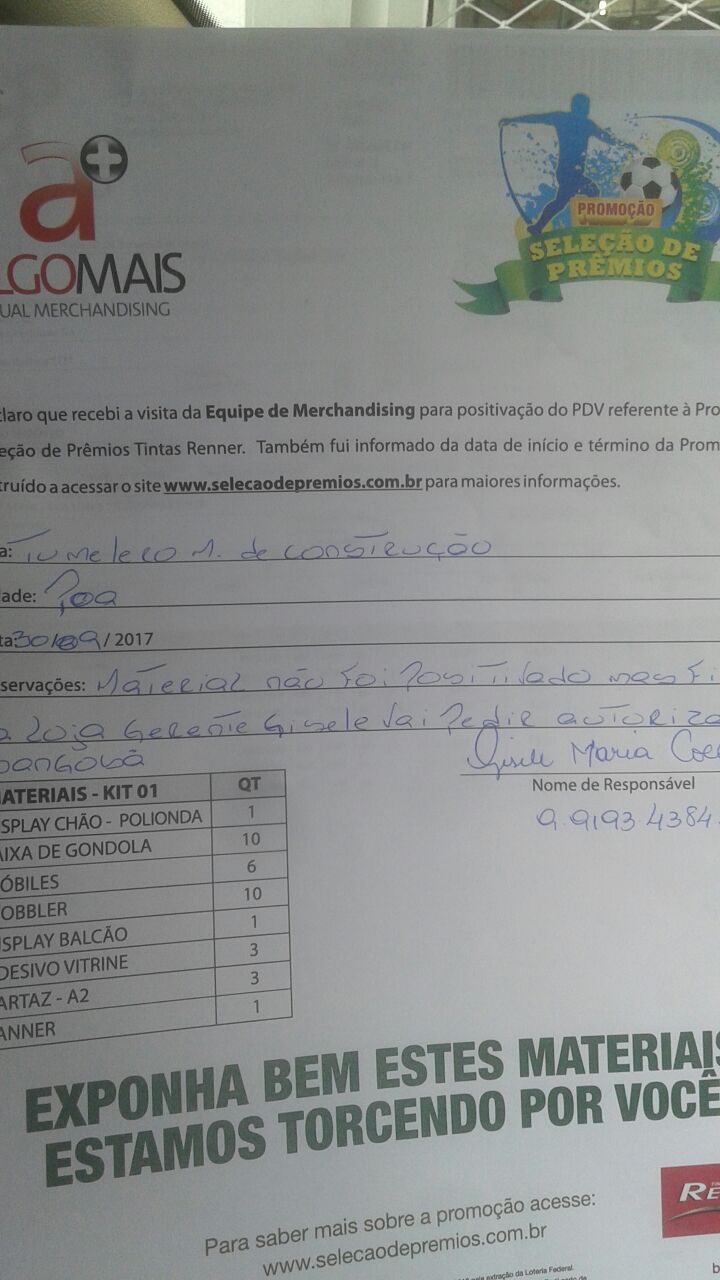 a+
LGOMAIS
UAL MERCHANDISING
PROMOÇÃO
SELEÇÃO DE
PRÊMIOS
claro que recebi a visita da Equipe de Merchandising para positivação do PDV referente à Pro
eção de Prêmios Tintas Renner. Também fui informado da data de início e término da Prom
truído a acessar o site www.selecaodepremios.com.br para maiores informações.
a: Tumelero M. de construção
ade: Poa
ta: 30/09/2017
servações: Material não foi Positivado mas fi
a Loja Gerente Gisele Vai Pedir autoriza
Gisele Maria Coe
Nome de Responsável
9.9193.4384
ATERIAIS - KIT 01 QT
SPLAY CHÃO - POLIONDA 1
AIXA DE GONDOLA 10
ÓBILES 6
OBBLER 10
SPLAY BALCÃO 1
DESIVO VITRINE 3
ARTAZ - A2 3
ANNER 1
EXPONHA BEM ESTES MATERIAIS
ESTAMOS TORCENDO POR VOCÊ
RE
Para saber mais sobre a promoção acesse:
www.selecaodepremios.com.br
extração da Loteria Federal.